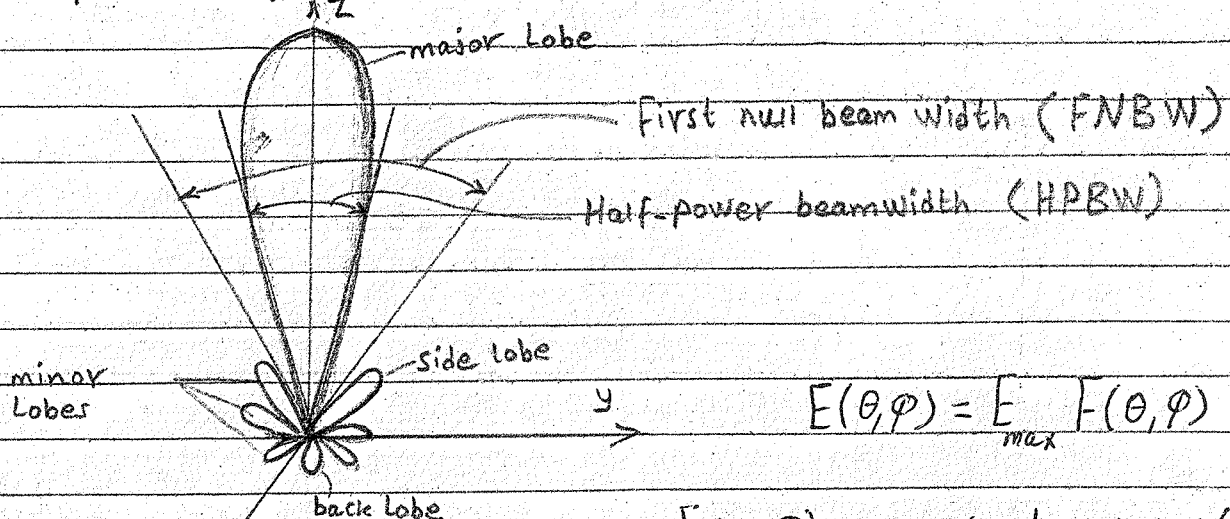 Z
major Lobe
First null beam width (FNBW)
Half-power beamwidth (HPBW)
side lobe
minor
Lobes
y
E(θ,φ) = E_max F(θ,φ)
back lobe